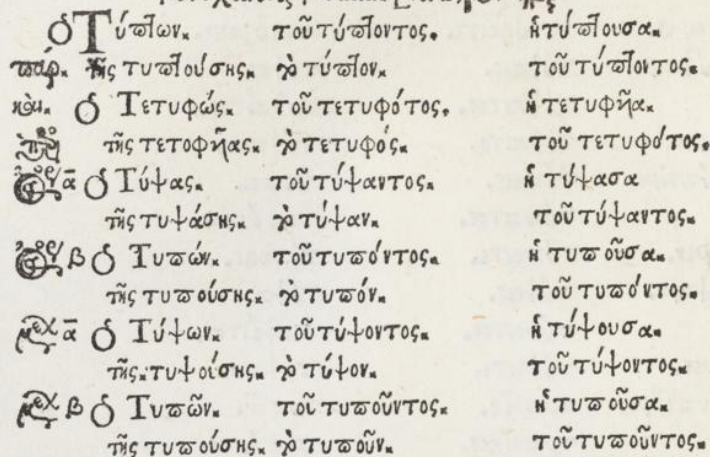 ὁ Τύπτων. τοῦ τύπτοντος. ἡ τύπτουσα.
παρ. τῆς τυπτούσης. τὸ τύπτον. τοῦ τύπτοντος.
καὶ. ὁ Τετυφώς. τοῦ τετυφότος. ἡ τετυφῆα.
τῆς τετοφῆας. τὸ τετυφός. τοῦ τετυφότος.
ᾱ ὁ Τύψας. τοῦ τύψαντος. ἡ τύψασα
τῆς τυψάσης. τὸ τύψαν. τοῦ τύψαντος.
β ὁ Τυπών. τοῦ τυπόντος. ἡ τυποῦσα.
τῆς τυπούσης. τὸ τυπόν. τοῦ τυπόντος.
μεχ ᾱ ὁ Τύψων. τοῦ τύψοντος. ἡ τύψουσα.
τῆς. τυψοίσης. τὸ τύψον. τοῦ τύψοντος.
μεχ β ὁ Τυπῶν. τοῖ τυποῦντος. ἡ τυποῦσα.
τῆς τυπούσης. τὸ τυποῦν. τοῦ τυποῦντος.